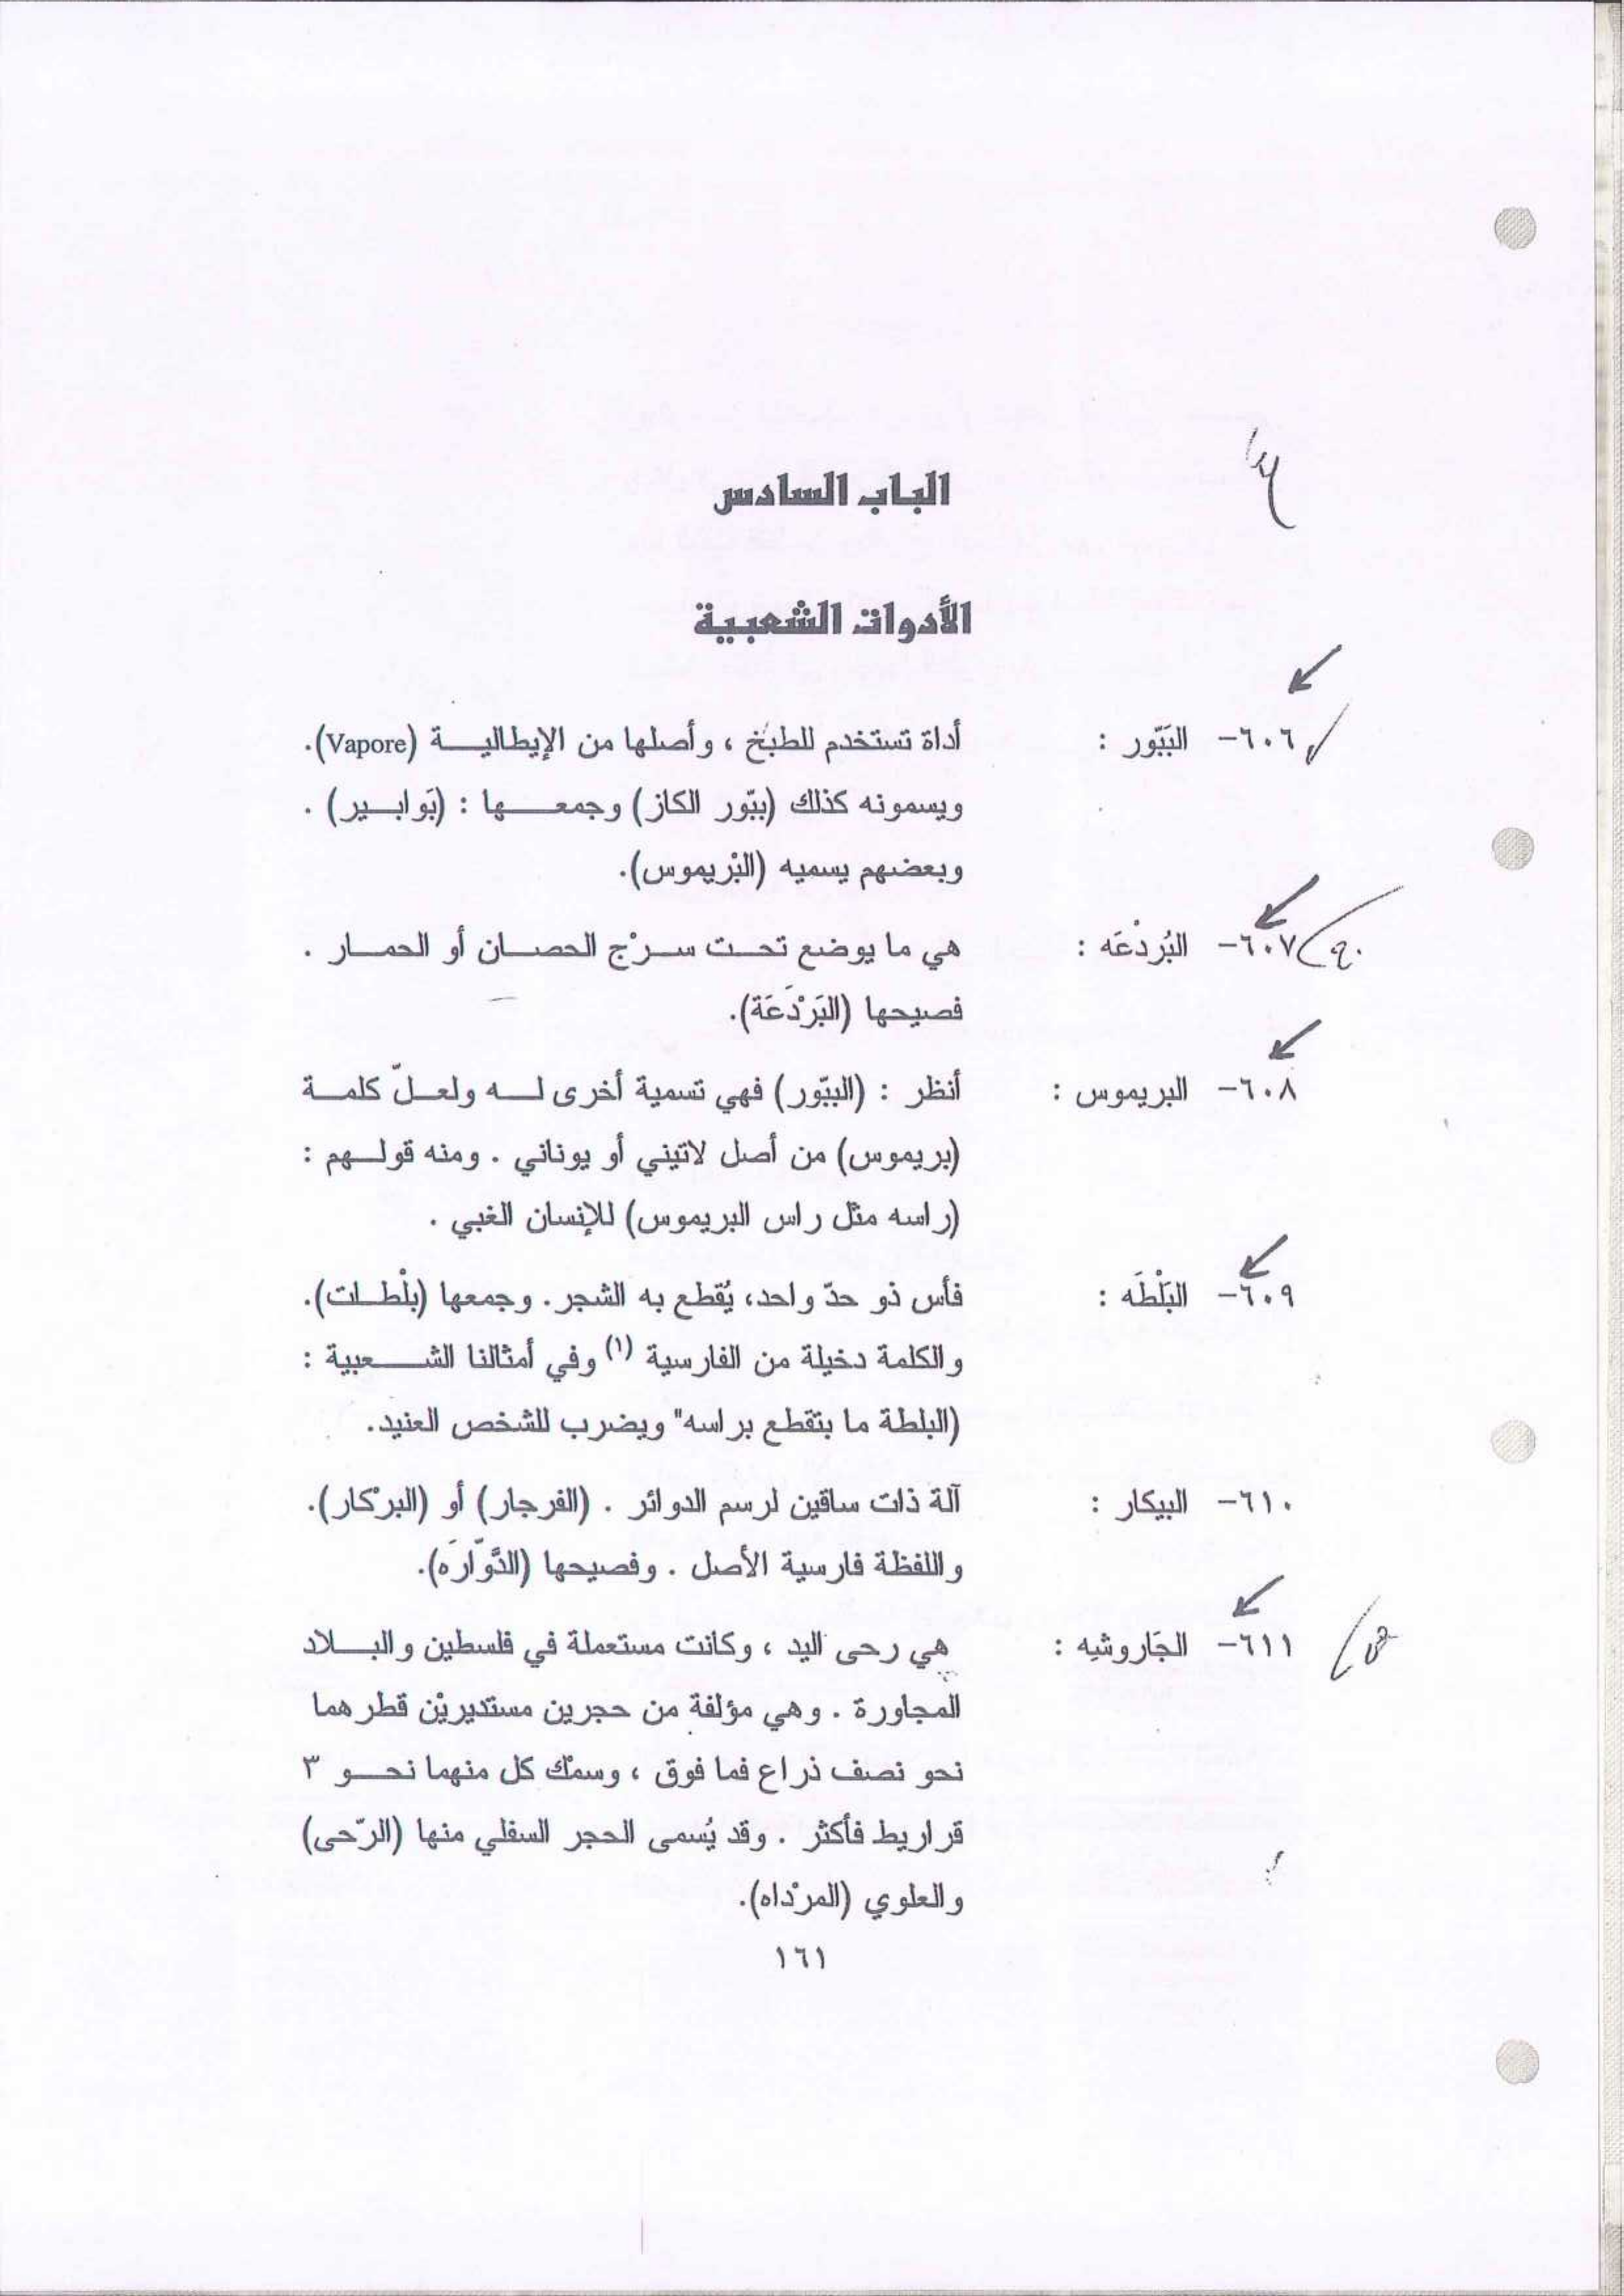 الباب السادس
الأدوات الشعبية
٦٠٦- البَبّور : أداة تستخدم للطبْخ ، وأصلها من الإيطاليــة (Vapore).
ويسمونه كذلك (ببّور الكاز) وجمعــها : (بَوابــير) .
وبعضهم يسميه (البْريموس).
٦٠٧- البُردْعَه : هي ما يوضع تحــت ســرْج الحصــان أو الحمــار .
فصيحها (البَرْدَعَة).
٦٠٨- البريموس : أنظر : (الببّور) فهي تسمية أخرى لــه ولعــلّ كلمــة
(بريموس) من أصل لاتيني أو يوناني . ومنه قولــهم :
(راسه مثل راس البريموس) للإنسان الغبي .
٦٠٩- البَلْطَه : فأس ذو حدّ واحد، يُقطع به الشجر. وجمعها (بلْطــات).
والكلمة دخيلة من الفارسية (١) وفي أمثالنا الشــعبية :
(البلطة ما بتقطع براسه" ويضرب للشخص العنيد.
٦١٠- البيكار : آلة ذات ساقين لرسم الدوائر . (الفرجار) أو (البرْكار).
واللفظة فارسية الأصل . وفصيحها (الدَّوّارَه).
٦١١- الجَاروشِه : هي رحى اليد ، وكانت مستعملة في فلسطين والبــلاد
المجاورة . وهي مؤلفة من حجرين مستديريْن قطرهما
نحو نصف ذراع فما فوق ، وسمْك كل منهما نحــو ٣
قراريط فأكثر . وقد يُسمى الحجر السفلي منها (الرّحى)
والعلوي (المرْداه).
١٦١